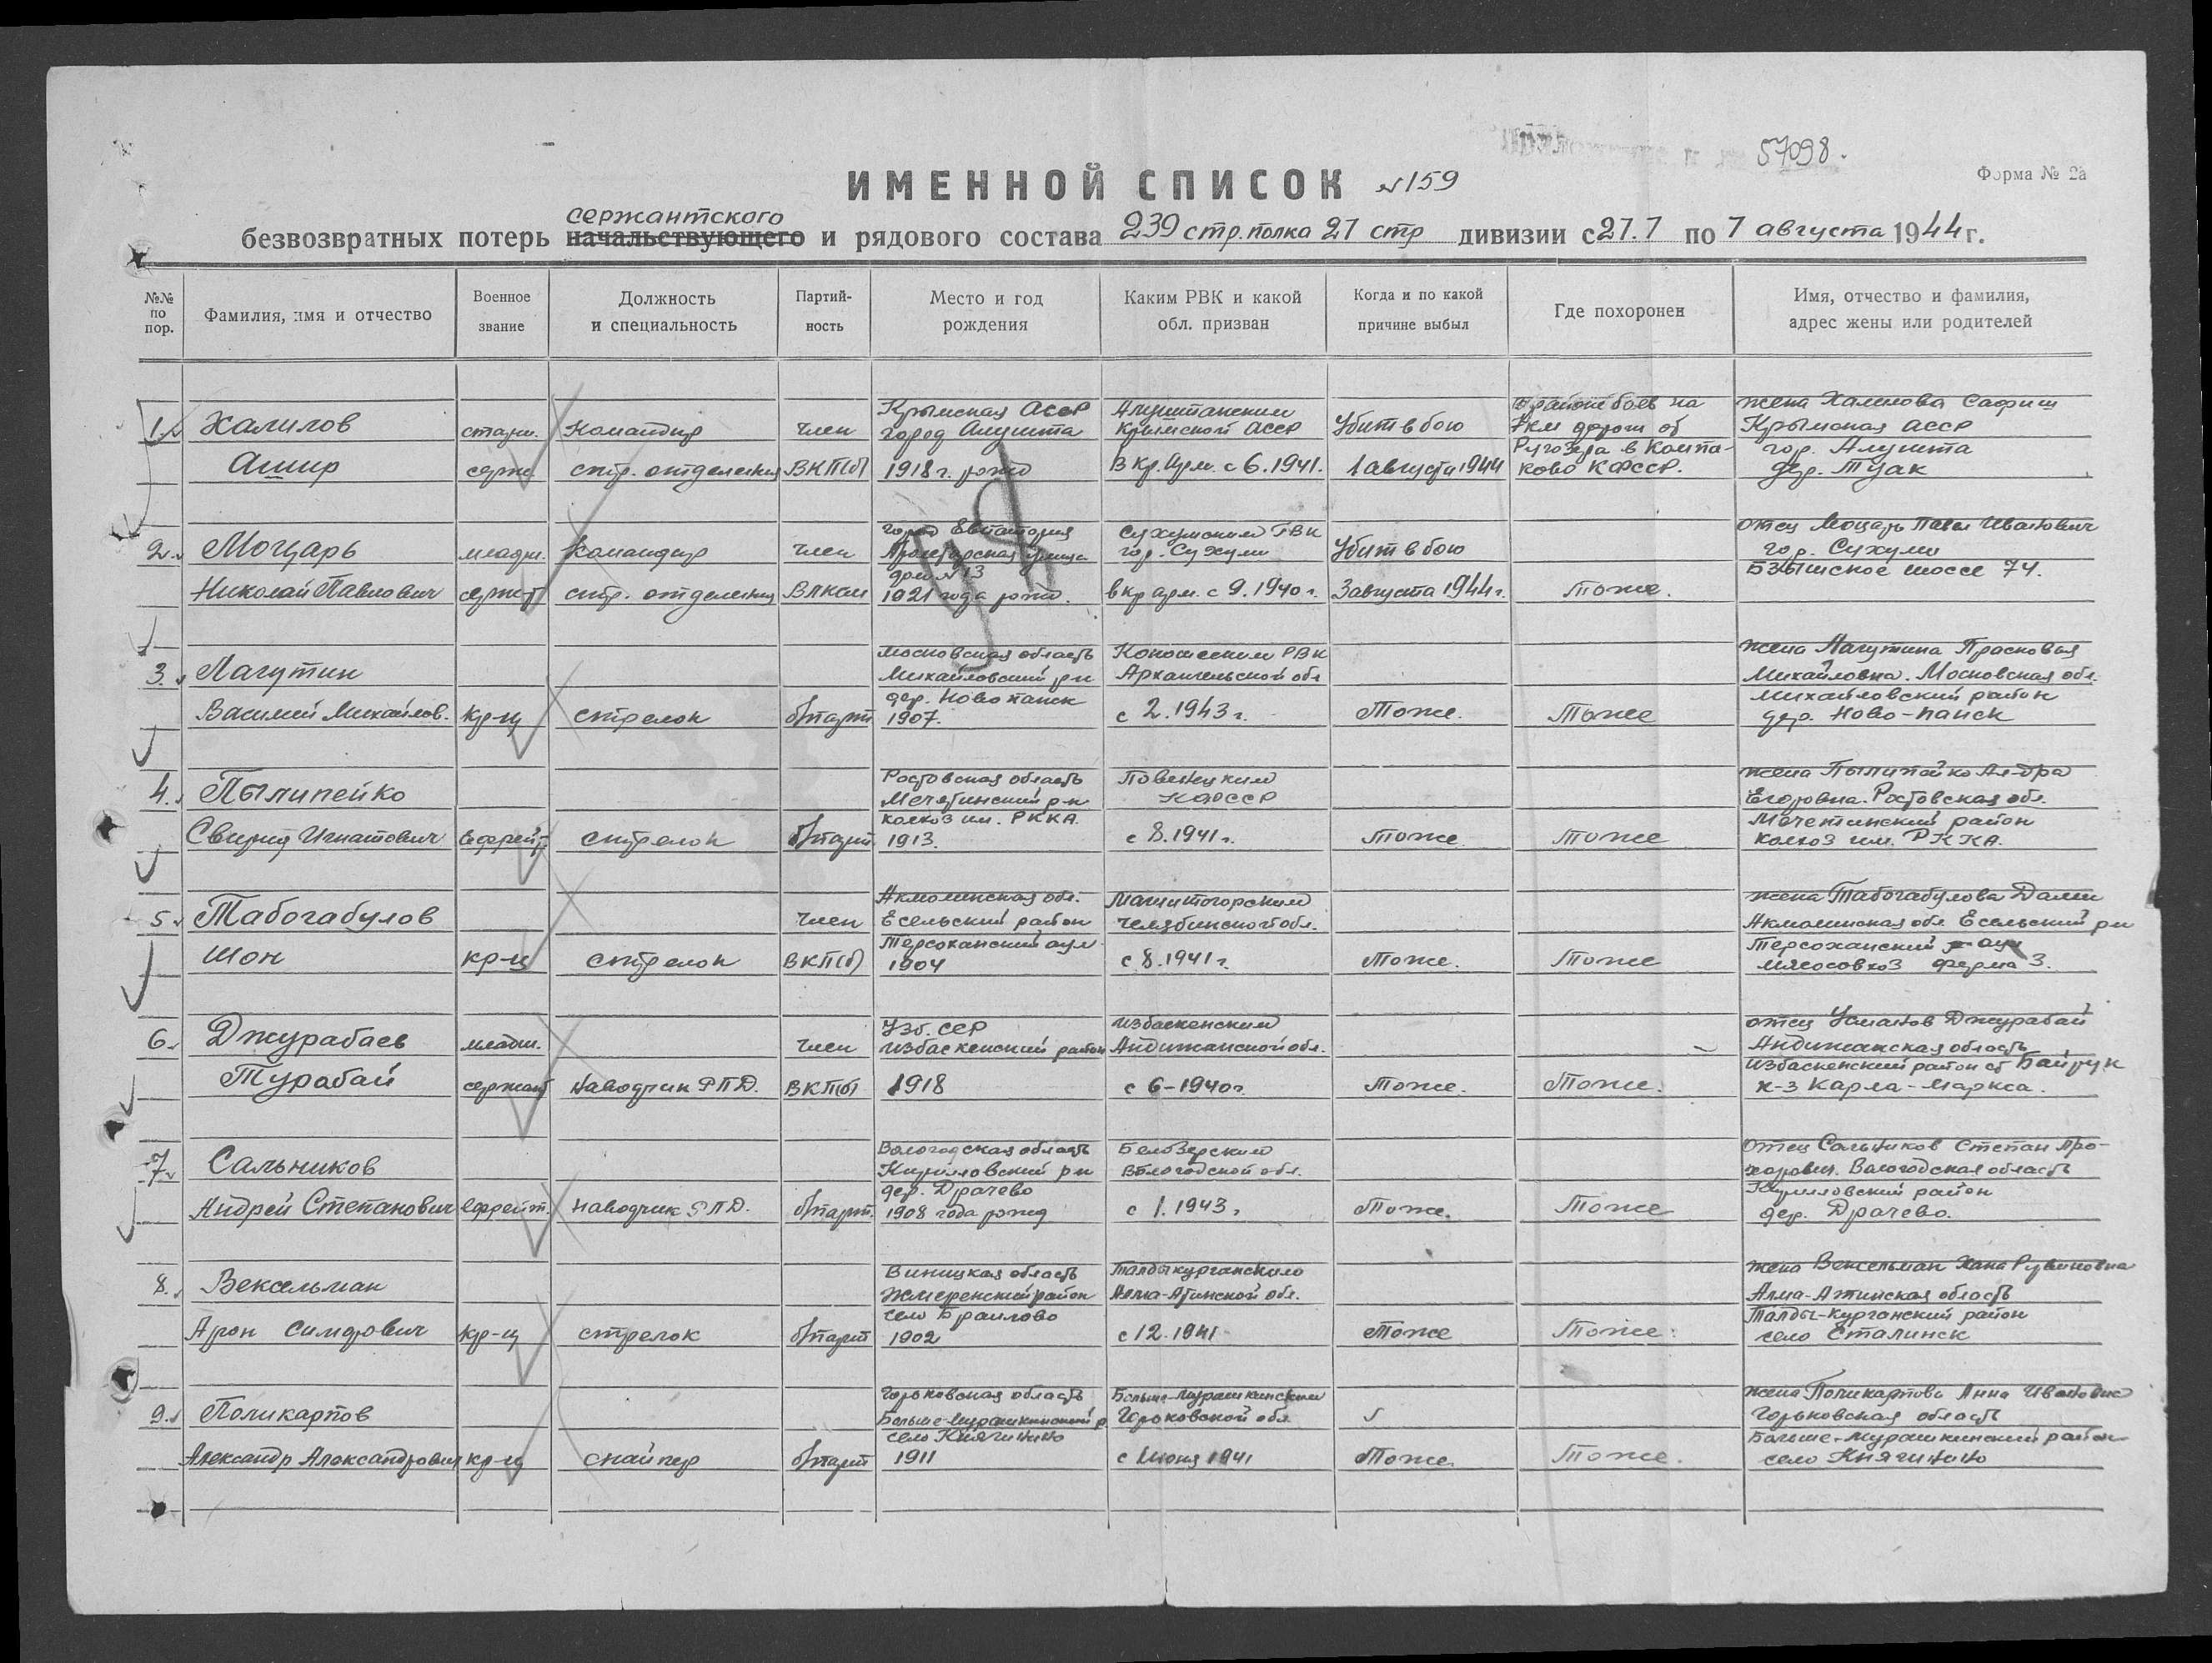 57098.
ИМЕННОЙ СПИСОК №159
Форма № 2а
сержантского
безвозвратных потерь начальствующего и рядового состава 239 стр. полка 27 стр дивизии с 27.7 по 7 августа 1944 г.
№№ по пор.
Фамилия, имя и отчество
Военное звание
Должность и специальность
Партий-ность
Место и год рождения
Каким РВК и какой обл. призван
Когда и по какой причине выбыл
Где похоронен
Имя, отчество и фамилия, адрес жены или родителей
1.
Халилов
Ашир
старш.
серж.
Командир
стр. отделения
член
ВКП(б)
Крымская АССР
город Алушта
1918 г. рожд
Алуштинским
Крымской АССР
в Кр. Арм. с 6.1941.
Убит в бою
1 августа 1944
В районе боев на
7 км дороги от
Ругозера в Компа-
ково КФССР.
жена Халилова
Крымская АССР
гор. Алушта
дер. Туак
2.
Моцарь
Николай Павлович
младш.
сержт
Командир
стр. отделения
член
ВЛКСМ
город Евпатория
Пролетарская улица
дом № 13
1921 года рожд.
Сухумским ГВК
гор. Сухуми
в кр арм. с 9.1940 г.
Убит в бою
3 августа 1944 г.
Тоже.
отец Моцарь Павел Иванович
гор. Сухуми
Бзыпское шоссе 74.
3.
Лагутин
Василий Михайлов.
кр-ц
стрелок
б/парт
Московская область
Михайловский р-н
дер. Ново панск
1907.
Коношским РВК
Архангельской обл
с 2.1943 г.
Тоже.
Тоже
жена Лагутина Прасковья
Михайловна. Московская обл.
Михайловский район
дер. Ново-панск
4.
Пылипейко
Свирид Игнатович
Ефрейт.
стрелок
б/парт
Ростовская область
Мечетинский р-н
колхоз им. РККА.
1913.
Повенецким
КФССР
с 8.1941 г.
Тоже
Тоже
жена Пылипейко Ал-дра
Егоровна. Ростовская обл.
Мечетинский район
колхоз им. РККА.
5.
Табогабулов
Шон
кр-ц
стрелок
член
ВКП(б)
Акмолинская обл.
Есельский район
Терсоканский аул
1904
Магнитогорским
Челябинской обл.
с 8.1941 г.
Тоже.
Тоже
жена Табогабулова
Акмолинская обл. Есельский р-н
Терсоканский аул
мясосовхоз ферма 3.
6.
Джурабаев
Турабай
младш.
сержант
Наводчик РПД.
член
ВКП(б)
Узб. ССР
Избаскенский район
1918
Избаскенским
Андижанской обл.
с 6-1940 г.
Тоже.
Тоже.
отец Усманов Джурабай
Андижанская область
Избаскенский район
к-з Карла-Маркса.
7.
Сальников
Андрей Степанович
Ефрейт.
Наводчик РПД.
б/парт.
Вологодская область
Кирилловский р-н
дер. Драчево
1908 года рожд
Белозерским
Вологодской обл.
с 1.1943 г
Тоже.
Тоже
отец Сальников Степан Про-
хорович. Вологодская область
Кирилловский район
дер. Драчево.
8.
Вексельман
Арон
кр-ц
стрелок
б/парт
Виницкая область
Жмеренский район
село Браилово
1902
Талдыкурганским
Алма-Атинской обл.
с 12.1941
Тоже
Тоже.
жена Вексельман Хана Рувиновна
Алма-Атинская область
Талды-Курганский район
село Сталинск
9.
Поликарпов
Александр Александрович
кр-ц
снайпер
б/парт
Горьковская область
Больше-Мурашкинский р
село Княгинино
1911
Больше-Мурашкинским
Горьковской обл
с июня 1941
Тоже.
Тоже.
жена Поликарпова Анна Ивановна
Горьковская область
Больше-Мурашкинский район
село Княгинино